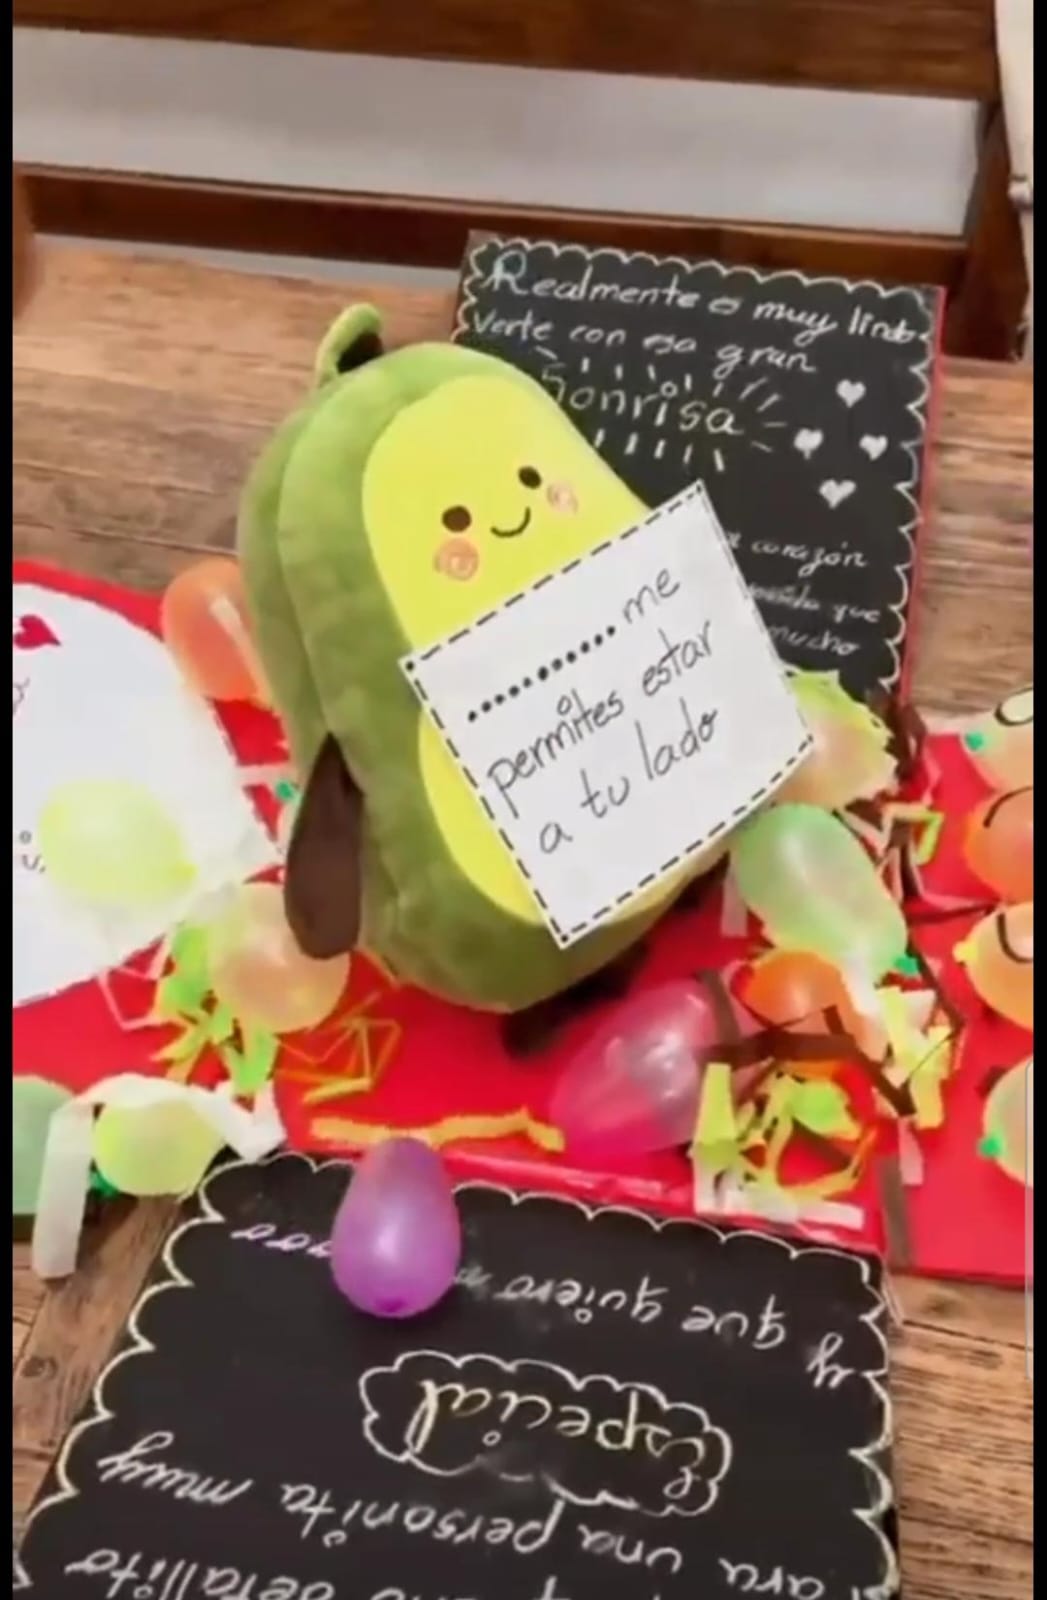 Realmente es muy lindo
Verte con esa gran
Sonrisa
corazón
que
mucho
.......... me
permites estar
a tu lado
detallito
para una personita muy
Especial
y que quiero